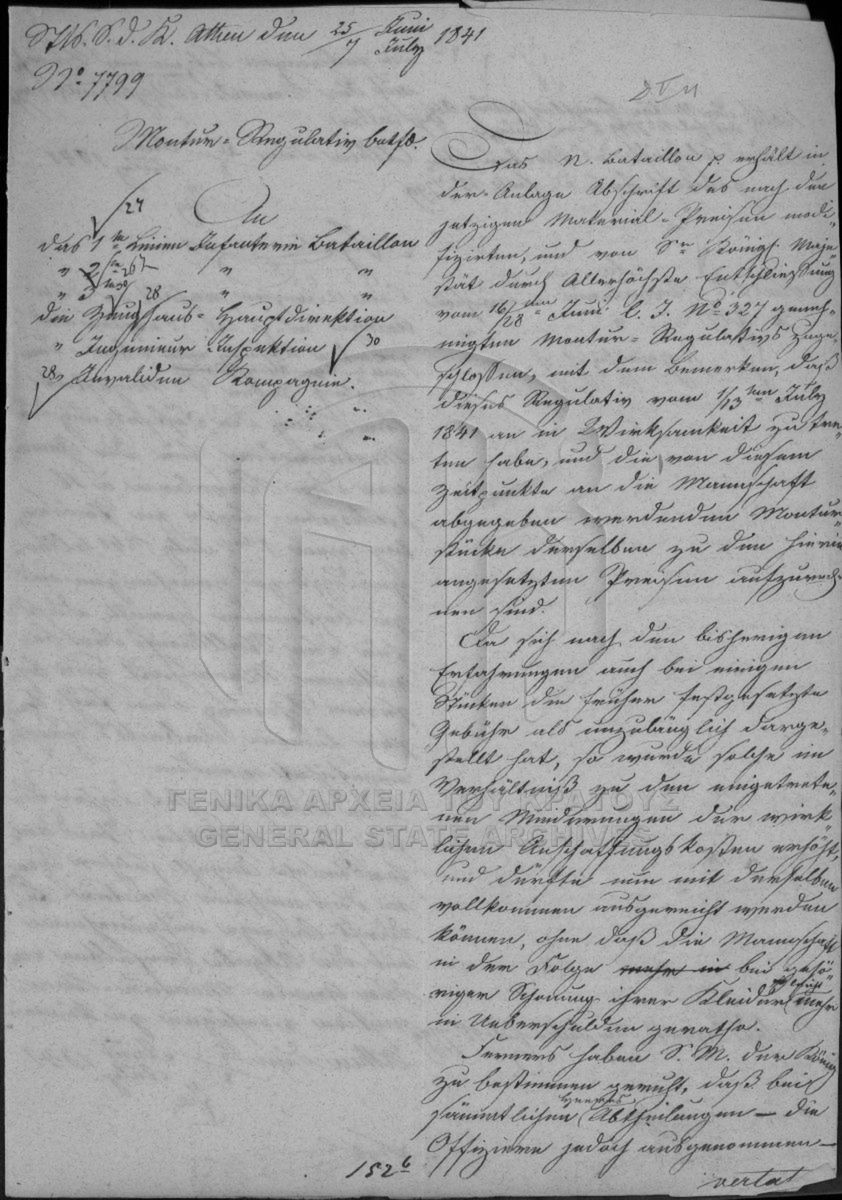 S. d. K. Athen den 25/7 Juni/July 1841
No. 7799
Montur-Regulativ betfd.
27
An
das 1te Linien Infanterie Bataillon
" 2te 26 " "
" 3 " "
28
die Zeughaus-Hauptdirektion
" Ingenieur-Inspektion 30
28 Invaliden Kompagnie.
Das N. Bataillon p. erhält in
der Anlage Abschrift des nach den
jetzigen Material-Preisen modi-
fizirten, und von Sr Königl. Maje-
stät durch Allerhöchste Entschließung
vom 16/28ten Juni l. J. No 327 geneh-
migten Montur-Regulativs
schlossen, mit dem Bemerken, daß
dieses Regulativ vom 1/13ten July
1841 an in Wirksamkeit zu tre-
ten habe, und die von diesem
Zeitpunkte an die Mannschaft
abgegeben werdenden Montur-
stücke derselben zu den hierin
angesetzten Preisen aufzurech-
nen sind.
Da sich nach den bisherigen
Erfahrungen auch bei einigen
Stücken die früher festgesetzte
Gebühr als unzulänglich darge-
stellt hat, so wurde solche im
Verhältniß zu den eingetrete-
nen Minderungen der wirk-
lichen Anschaffungskosten erhöht,
und dürfte nun mit derselben
vollkommen ausgereicht werden
können, ohne daß die Mannschaft
in der Folge mehr in bei gehö-
riger Schonung ihrer Kleider mehr
in Ueberschulden gerathe.
Ferners haben S. M. der König
zu bestimmen geruht, daß bei
sämmtlichen Abtheilungen – die
Offiziere jedoch ausgenommen –
vertat
1526
ΓΕΝΙΚΑ ΑΡΧΕΙΑ ΤΟΥ ΚΡΑΤΟΥΣ
GENERAL STATE ARCHIVES